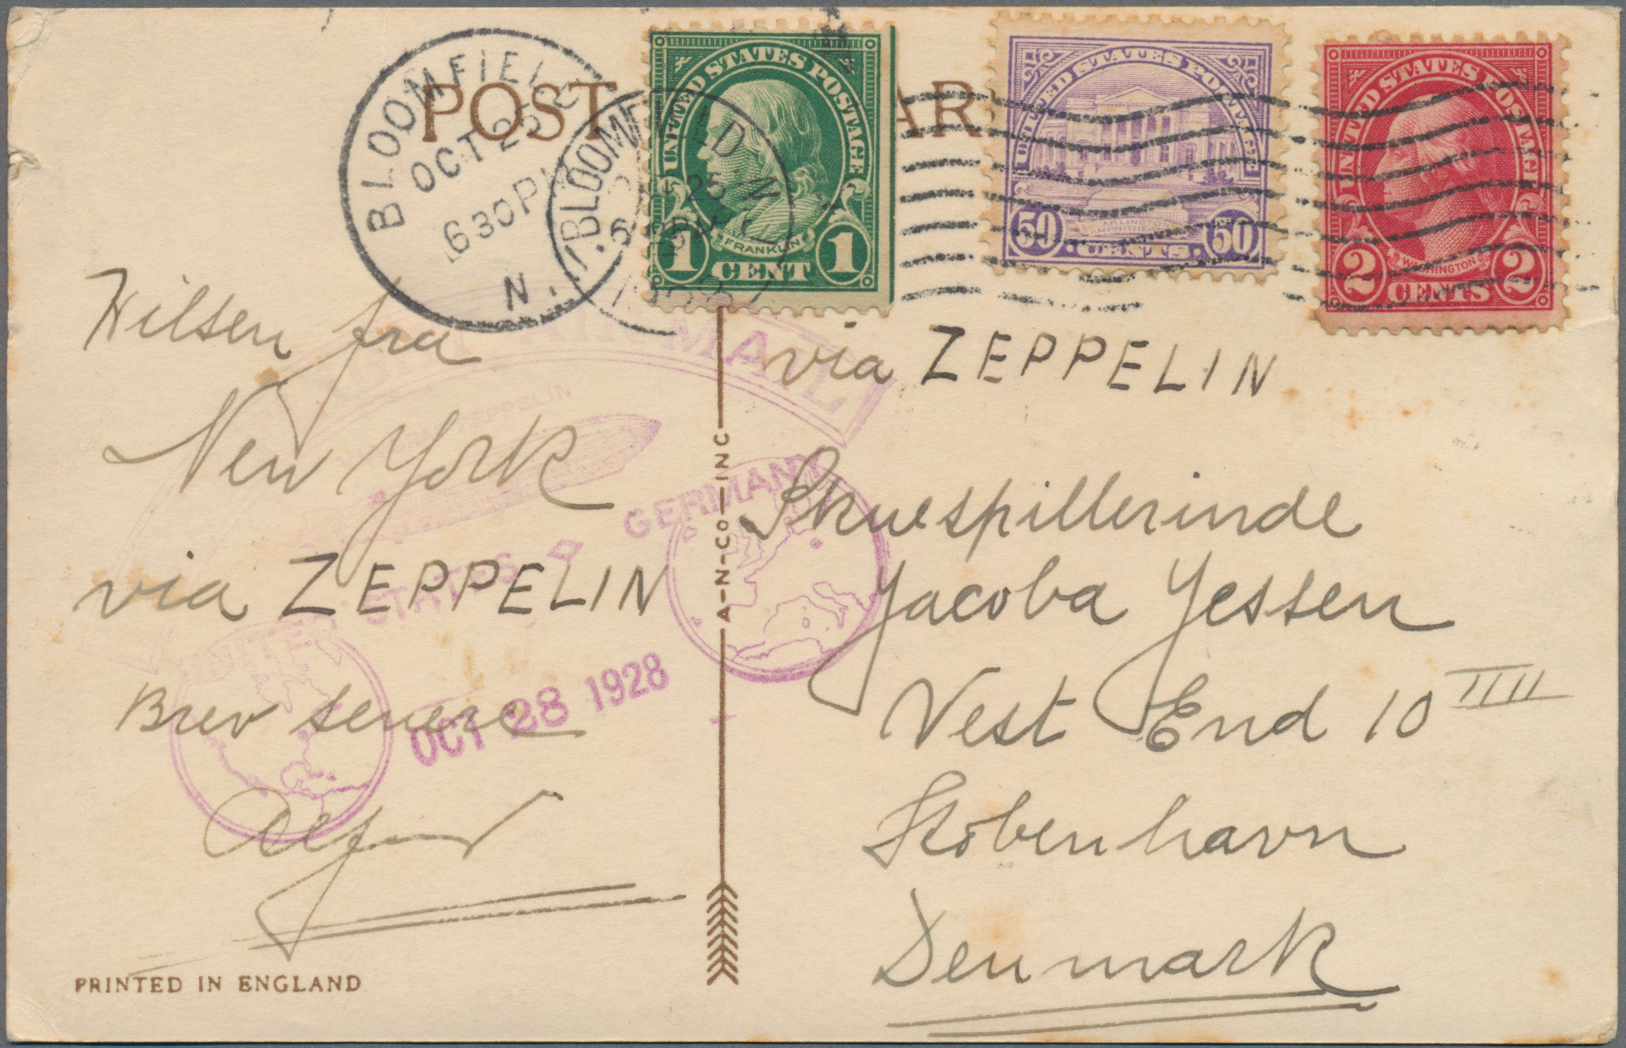 POST CARD
BLOOMFIELD
OCT 25
630 PM
N.
BLOOMFIELD N
25
UNITED STATES POSTAGE
FRANKLIN
1 CENT 1
UNITED STATES POSTAGE
50 CENTS 50
UNITED STATES POSTAGE
WASHINGTON
2 CENTS 2
AIR MAIL
ZEPPELIN
UNITED STATES GERMANY
OCT 28 1928
Hilsen fra
New York
via ZEPPELIN
Brev senere
Alfred
A-N-CO-INC
via ZEPPELIN
Skuespillerinde
Jacoba Jessen
Vest End 10 IIII
København
Denmark
PRINTED IN ENGLAND